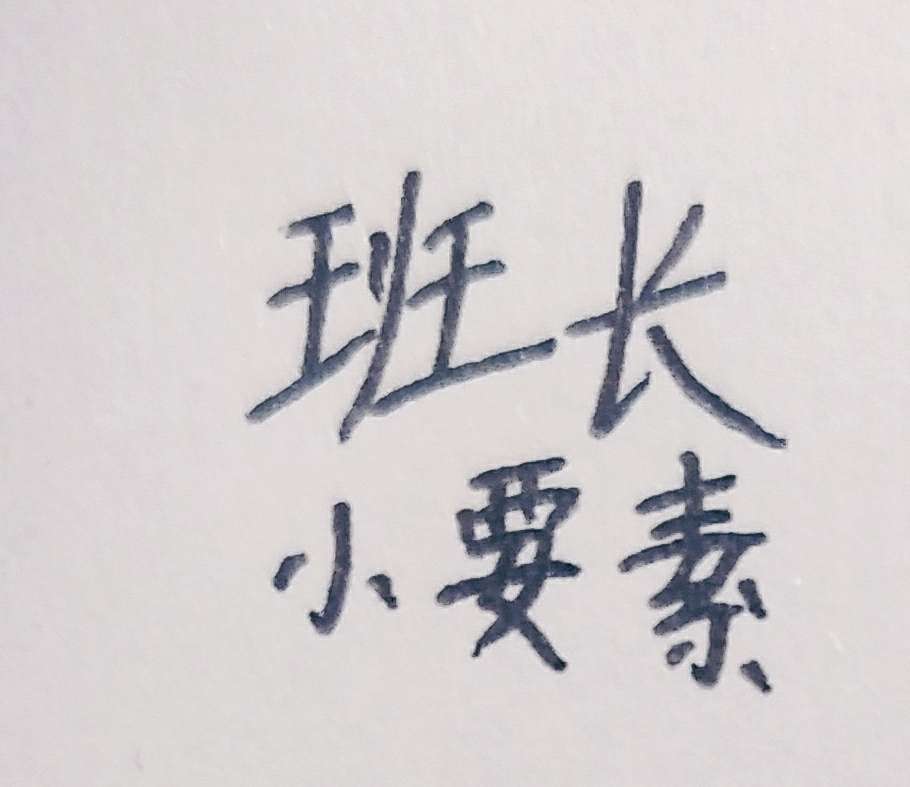 班长
小要素